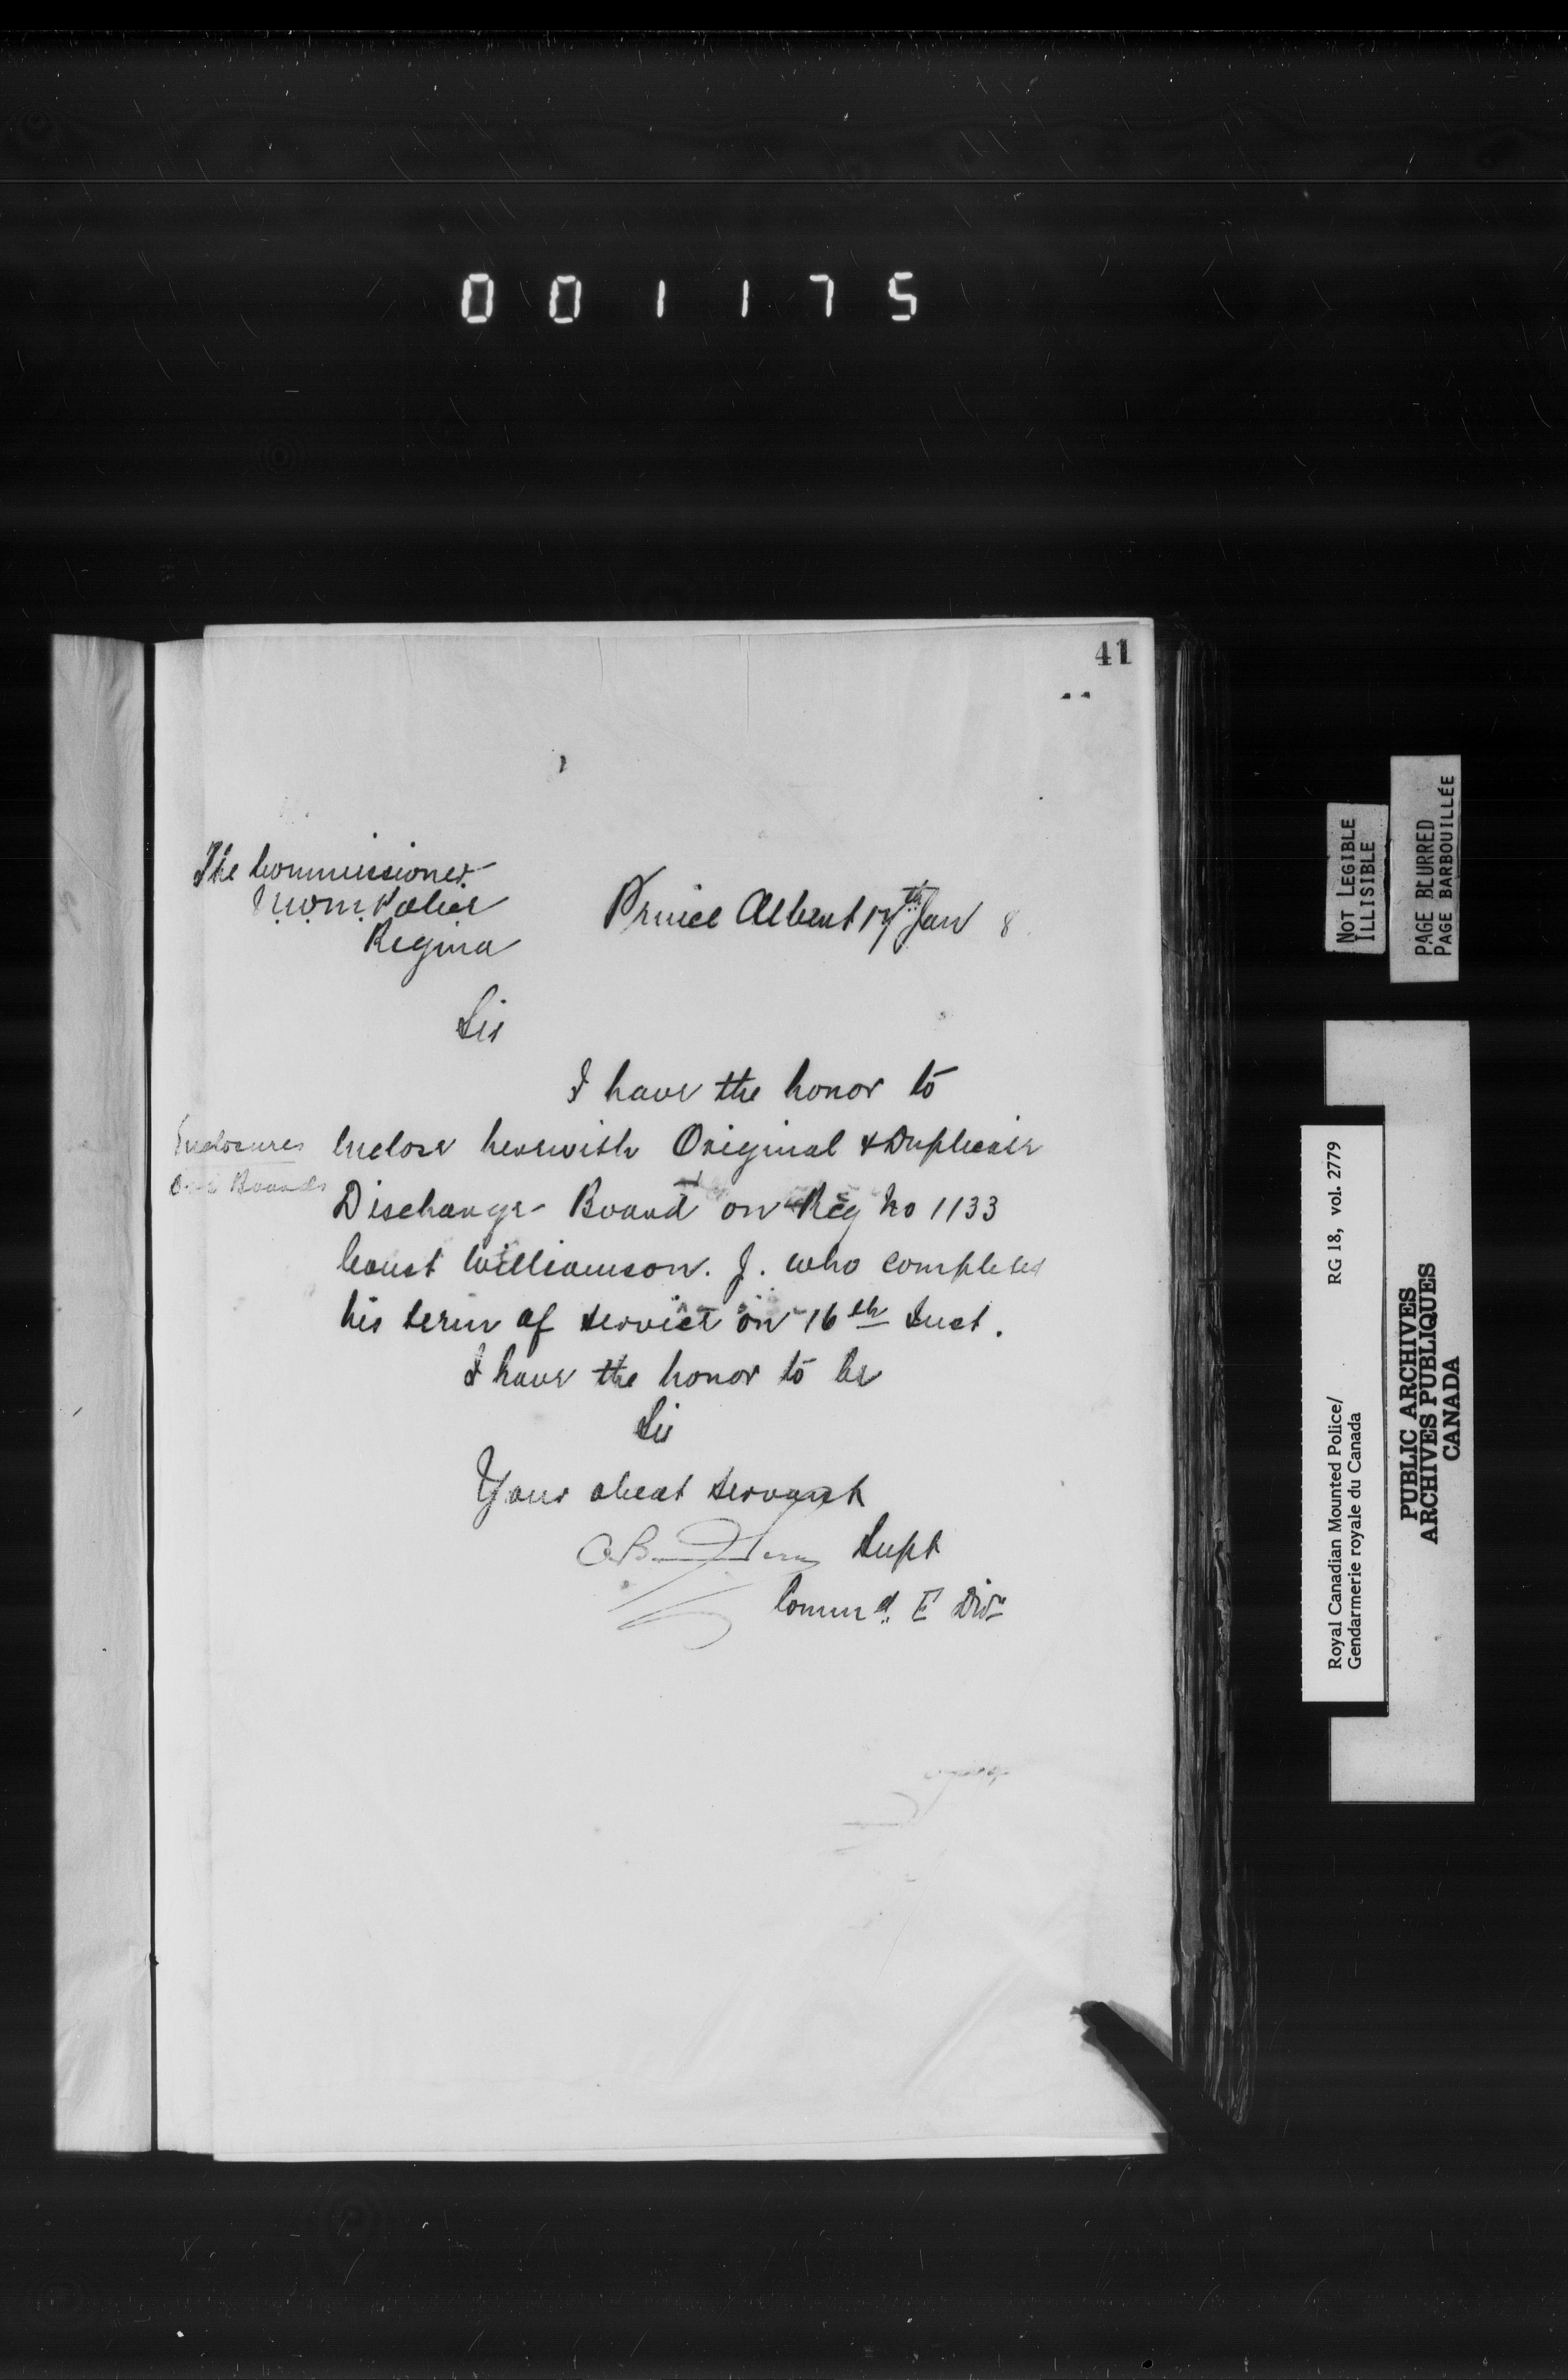 001175
41
The Commissioner
N.W.M. Police
Regina
Prince Albert 17th Jan 8
Sir
I have the honor to
Enclosures
Boards
Enclose herewith Original & Duplicate
Discharge Board on Reg No 1133
Const Williamson. J. who completed
his term of service on 16th Inst.
I have the honor to be
Sir
Your obedt Servant
Supt
Commd. E Divn
NOT LEGIBLE
ILLISIBLE
PAGE BLURRED
PAGE BARBOUILLÉE
RG 18, vol. 2779
Royal Canadian Mounted Police/
Gendarmerie royale du Canada
PUBLIC ARCHIVES
ARCHIVES PUBLIQUES
CANADA